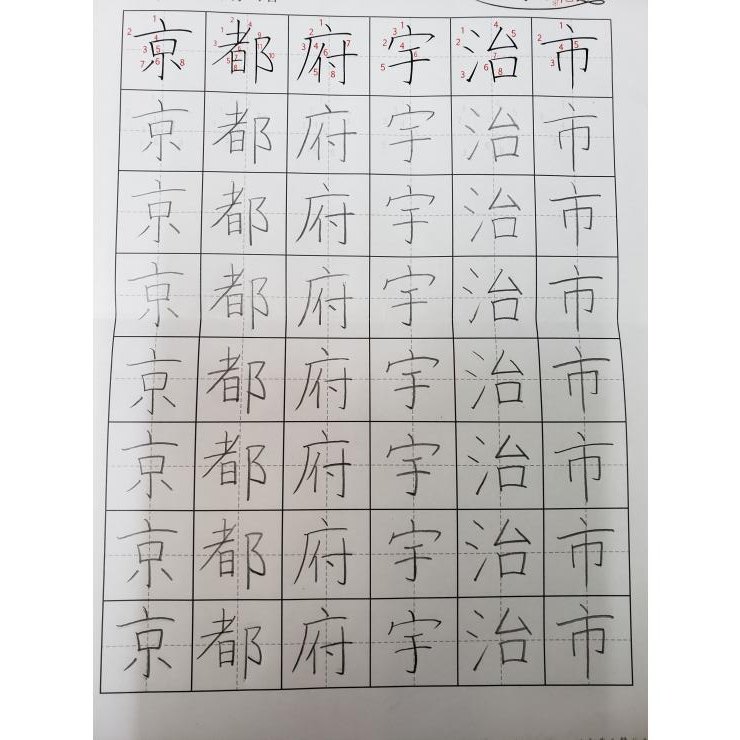 京都府宇治市
京都府宇治市
京都府宇治市
京都府宇治市
京都府宇治市
京都府宇治市
京都府宇治市
京都府宇治市